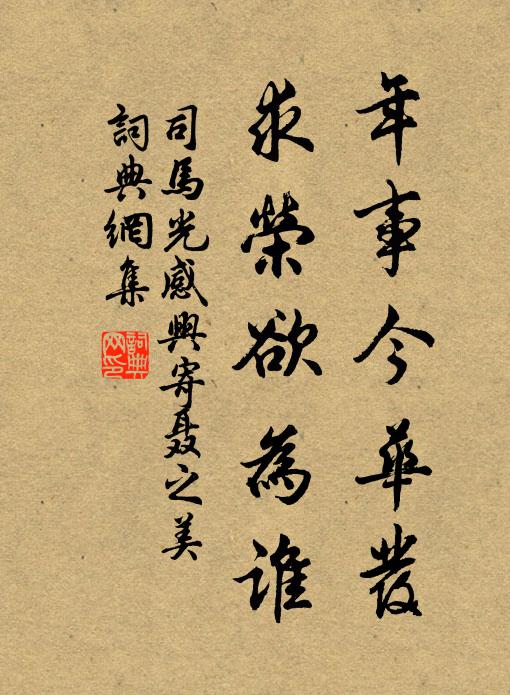 年事今華發
求榮欲為誰
司馬光感興寄聂之美
詞典網集
詞典网印